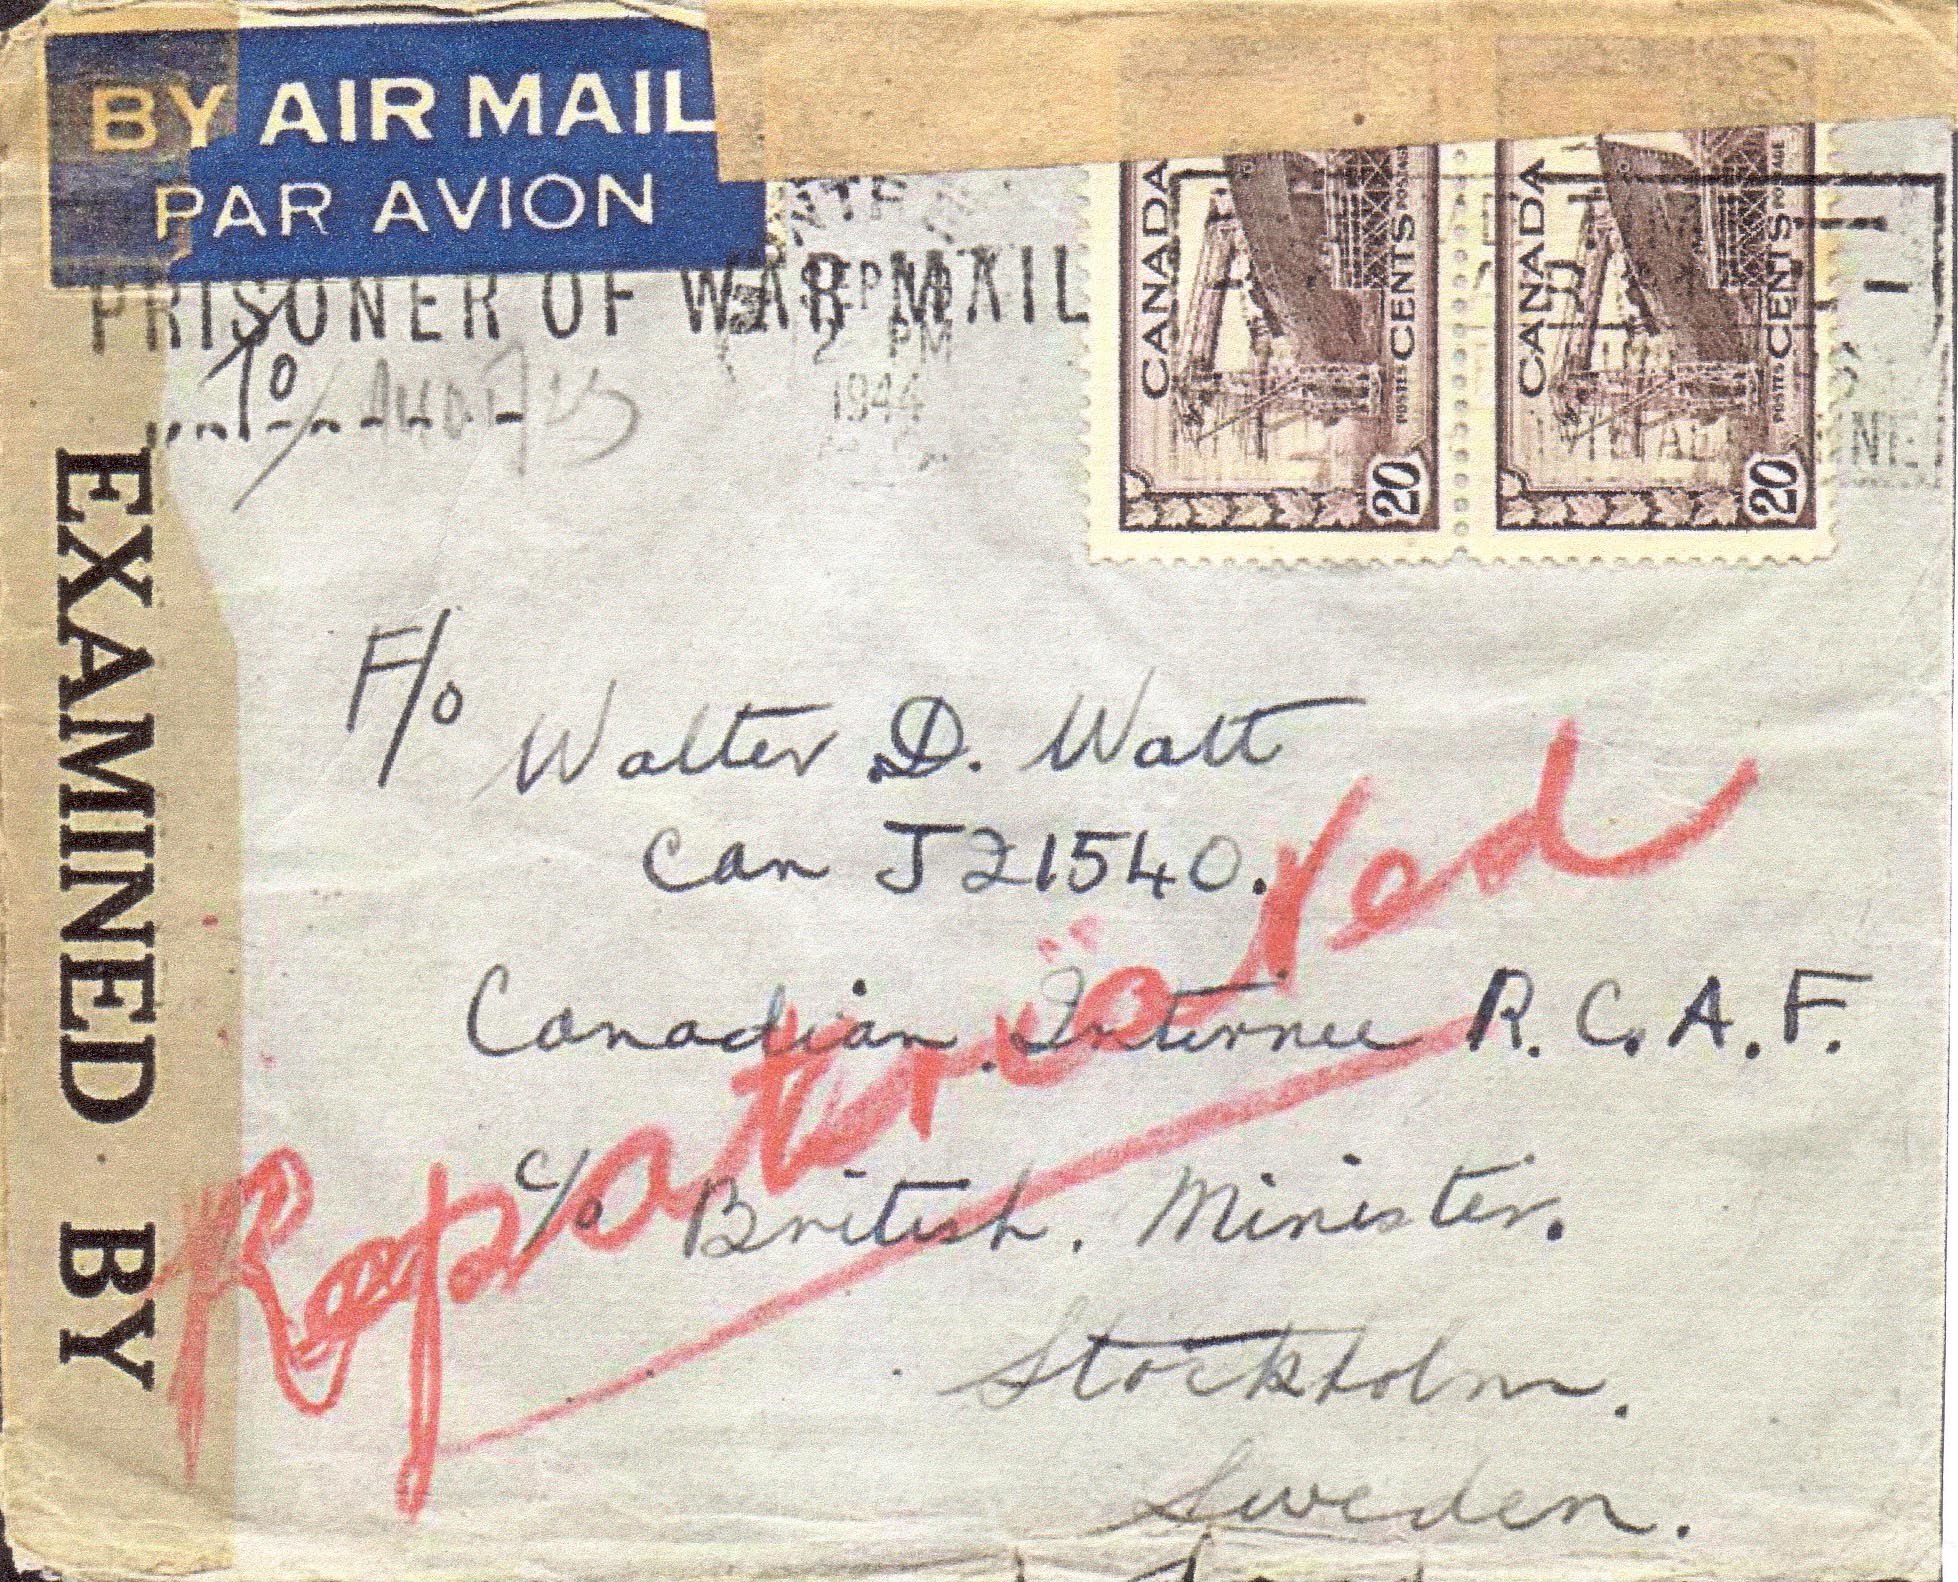 BY AIR MAIL
PAR AVION
PRISONER OF WAR MAIL
To
SEP
PM
1944
CANADA
POSTES CENTS POSTAGE
20
CANADA
POSTES CENTS POSTAGE
20
EXAMINED BY
F/o Walter D. Watt
Can J21540.
Canadian Internee R.C.A.F.
c/o British. Minister.
Stockholm.
Sweden.
Repatriated